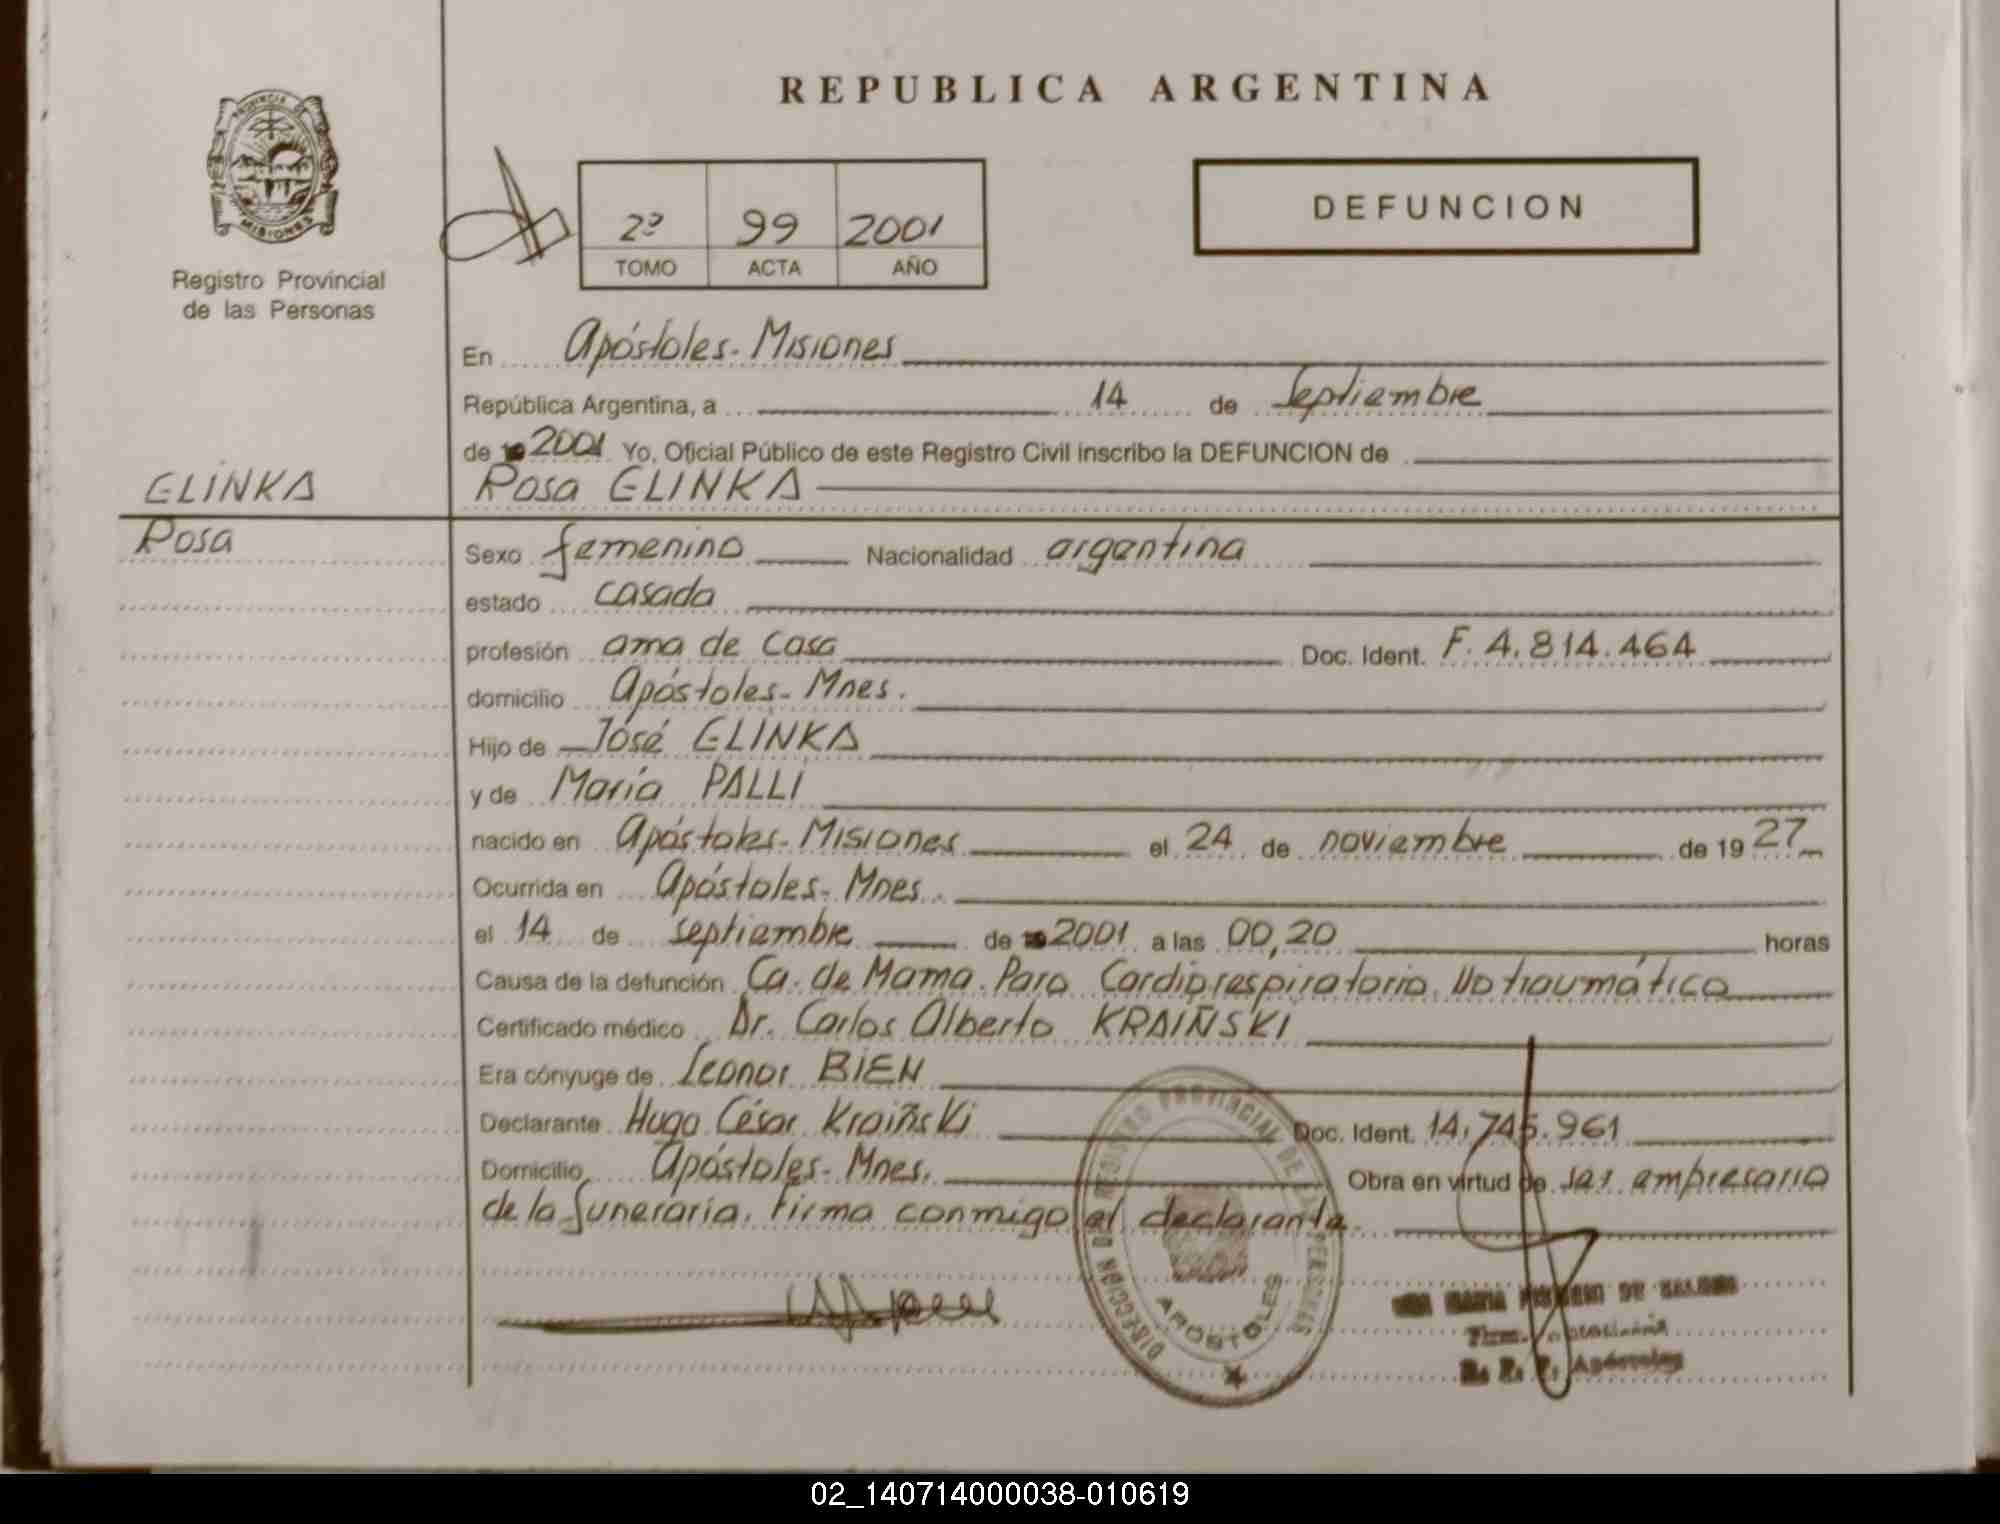 REPUBLICA ARGENTINA
PROVINCIA DE
MISIONES
Registro Provincial
de las Personas
2º 99 2001
TOMO ACTA AÑO
DEFUNCION
En Apóstoles-Misiones
República Argentina, a 14 de Septiembre
de 2001 Yo, Oficial Público de este Registro Civil inscribo la DEFUNCION de
GLINKA
Rosa GLINKA
Rosa
Sexo femenino Nacionalidad argentina
estado casada
profesión ama de casa Doc. Ident. F. 4.814.464
domicilio Apóstoles-Mnes.
Hijo de José GLINKA
y de María PALLI
nacido en Apóstoles-Misiones el 24 de noviembre de 1927
Ocurrida en Apóstoles-Mnes.
el 14 de septiembre de 2001 a las 00,20 horas
Causa de la defunción Ca. de Mama. Paro Cardiorespiratorio No traumático
Certificado médico Dr. Carlos Alberto KRAIÑSKI
Era cónyuge de Leonor BIEN
Declarante Hugo César Kraiñski Doc. Ident. 14.745.961
Domicilio Apóstoles-Mnes. Obra en virtud de ser empresario
de la funeraria. Firma conmigo el declarante.
DIRECCION DEL REGISTRO PROVINCIAL DE LAS PERSONAS
APOSTOLES
MARIA DE
R. P. P. Apóstoles
02_140714000038-010619